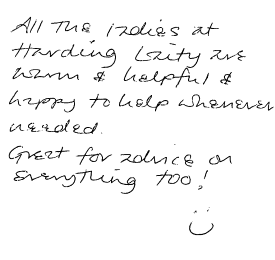 All the ladies at
Harding Laity are
warm & helpful &
happy to help whenever
needed.
Great for advice on
everything too!